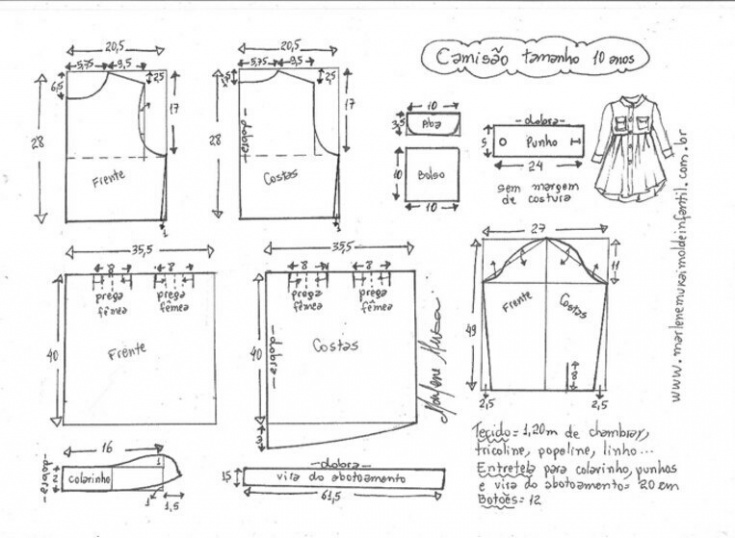 Camisão tamanho 10 anos
20,5
5,75 9,5
6,5
2,5
17
28
Frente
1
20,5
5,75 9,5
2,5
17
28
dobra
Costas
1
10
3,5
Aba
10
Bolso
10
dobra
5
Punho
24
sem margem
de costura
www.marlenemukaimoldeinfantil.com.br
35,5
8 8
prega
fêmea
prega
fêmea
40
Frente
35,5
8 8
prega
fêmea
prega
fêmea
40
dobra
Costas
3
Marlene Mukai
27
11
49
Frente
Costas
8
2,5
2,5
16
dobra
2
colarinho
1
1
1,5
dobra
vira do abotoamento
61,5
Tecido = 1,20m de chambray,
tricoline, popeline, linho...
Entretela para colarinho, punhos
e vira do abotoamento= 20 cm
Botões= 12